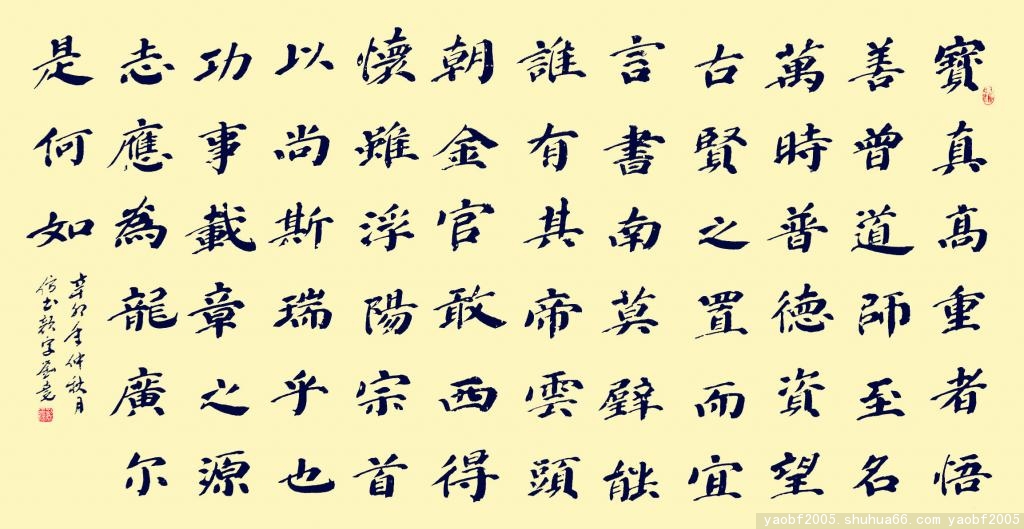 寶真高重者悟
善曾道師至名
萬時普德資望
古賢之置而宜
言書南莫壁能
誰有其帝雲頭
朝金官敢西得
懷雖浮陽宗首
以尚斯瑞乎也
功事載章之源
志應為龍廣尔
是何如
辛卯年仲秋月
仿书颜字
yaobf2005.shuhua66.com yaobf2005